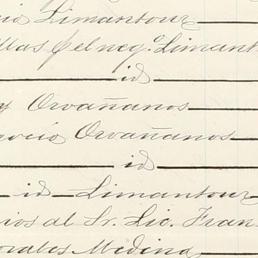 Limantour
el neg.º Limant
id
y Orvañanos
Orvañanos
id
id Limantour
ios al Sr. Lic. Fran
orales Medina